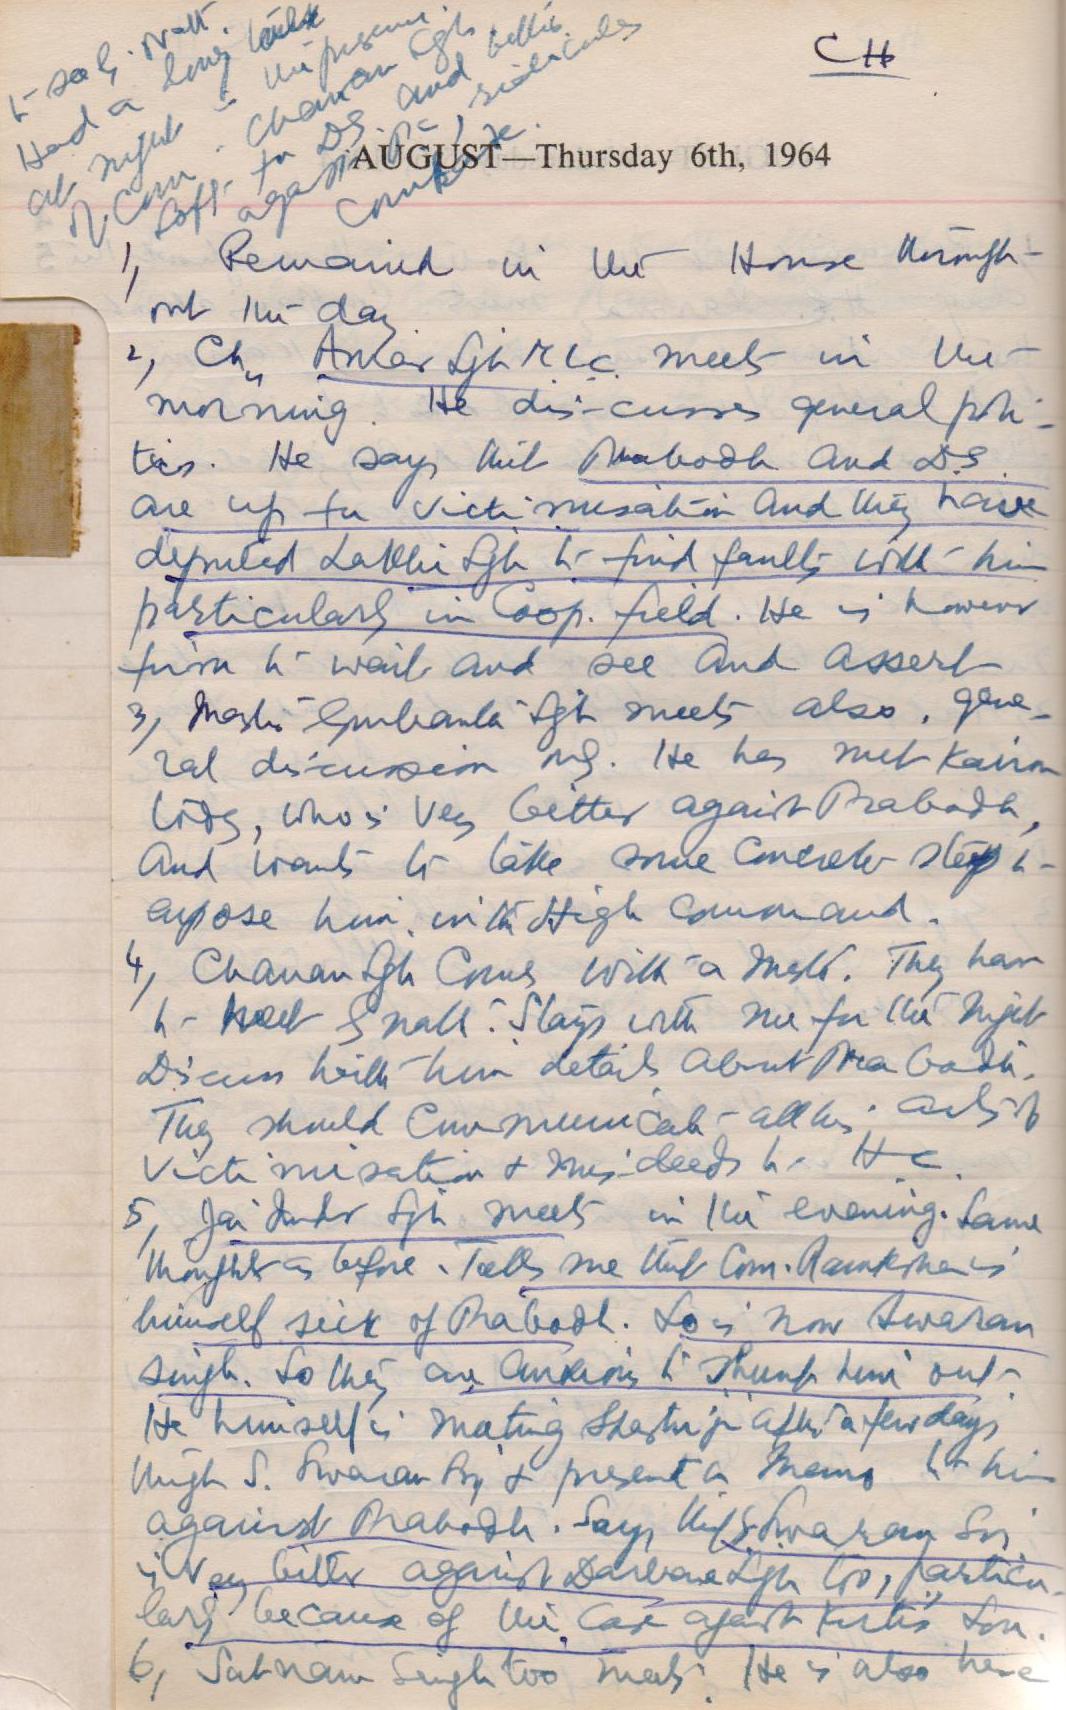 to see S. Natt.
Had a long talk
at night in the presence
of Com. Chanan Sgh
Soft to DS and bitter
against PC, ridicules
Comrade.
CH
AUGUST—Thursday 6th, 1964
1, Remained in the House through-
out the day
2, Ch. Amar Sgh MLC meets in the
morning. He dis-cusses general poli-
tics. He says that Prabodh and DS
are up to victimisation and they have
deputed Lakhi Sgh to find faults with him
particularly in Coop. field. He is however
firm to wait and see and assert
3, Master Gurbanta Sgh meets also, gene-
ral discussion only. He has met Kairon
today, who is very bitter against Prabodh,
and wants to take some concrete step to
expose him with High Command.
4, Chanan Sgh comes with a They have
to meet S Natt. Stays with me for the night
Discuss with him details about Prabodh.
They should communicate all his acts of
victimisation & misdeeds to H C.
5, Jai Inder Sgh meets in the evening. Same
thoughts as before. Tells me that Com. Ramkishan is
himself sick of Prabodh. So is now Swaran
Singh. So they are anxious to him out.
He himself is meeting Shastriji after a few days
through S. Swaran & present a Memo to him
against Prabodh. Says that S. Swaran Sgh
is very bitter against Darbara Sgh too, particu-
larly because of the case against son.
6, Satnam Singh too meets. He is also here